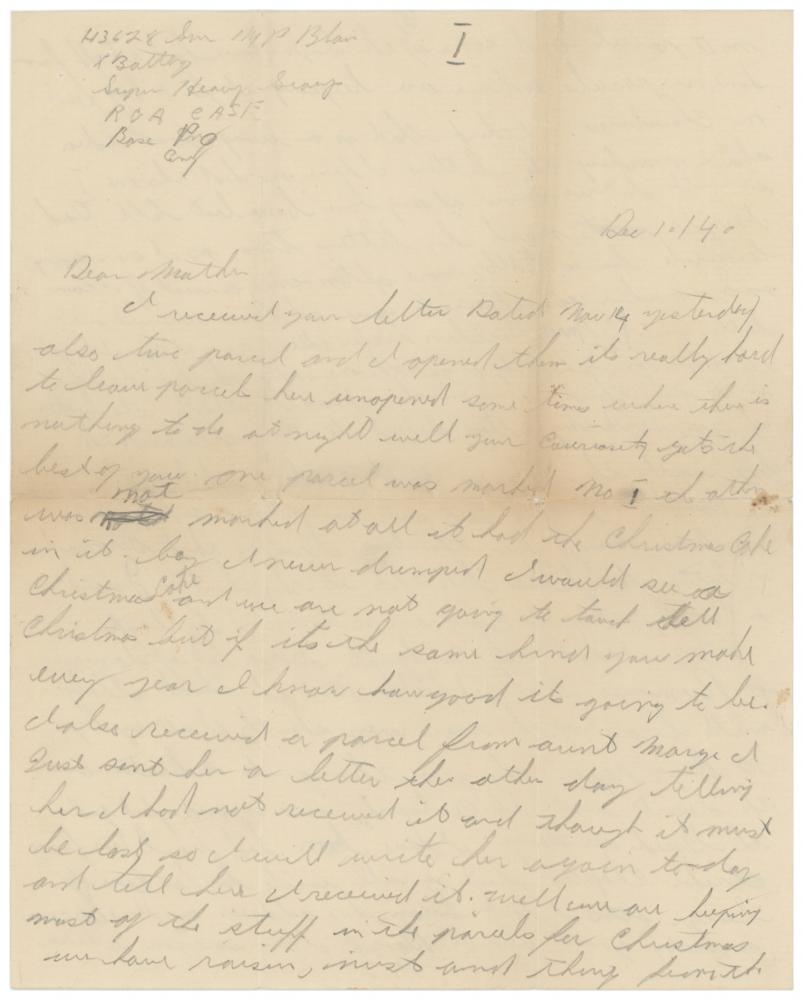 I
H3628 Gnr M P Blair
X Battery
Super Heavy Group
R C A CASF
Base P.O
Eng
Dec 10/40
Dear Mother
I received your letter Dated Nov 14 yesterday
also two parcel and I opened them its really hard
to leave parcel here unopened some times when there is
nothing to do at night well your couriosety gets the
best of you. one parcel was marked No 1 the other
was not marked at all it had the Christmas Cake
in it. boy I never dremped I would see a
Christmas Cake and we are not going to touch till
Christmas but if its the same kind you make
every year I know how good it going to be.
I also received a parcel from aunt Marge I
Just sent her a letter the other day telling
her I had not received it and though it must
be lost so I will write her again to-day
and tell here I received it. well we are keeping
most of the stuff in the parcels for Christmas
we have raisin, nuts and thing from the